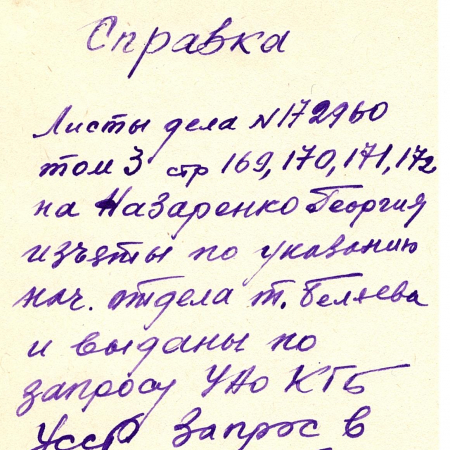 Справка
Листы дела N 172960
том 3 стр 169, 170, 171, 172
на Назаренко Георгия
изъяты по указанию
нач. отдела т. Беляева
и выданы по
запросу УАо КГБ
Усср Запрос в